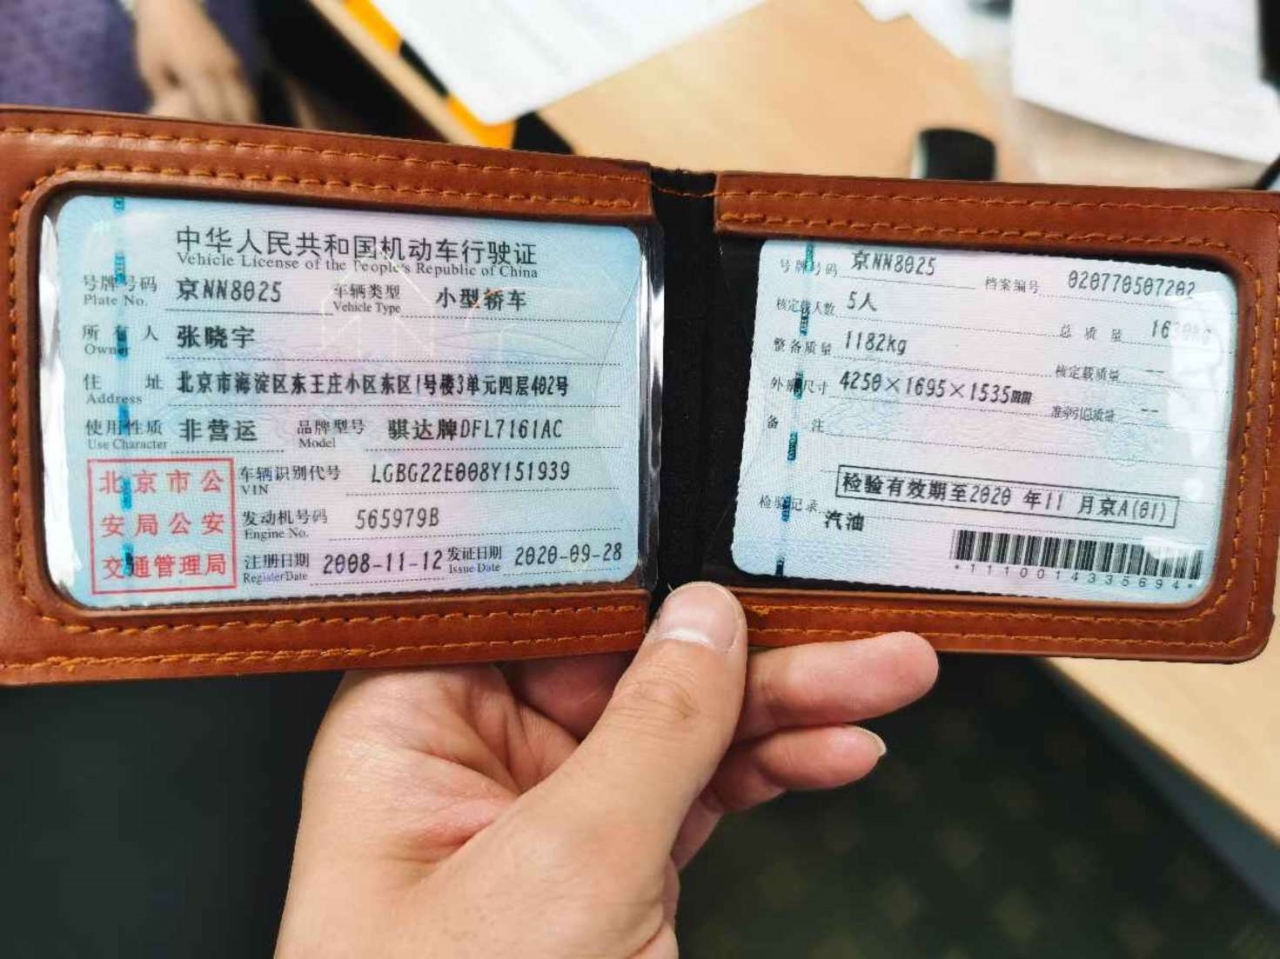 中华人民共和国机动车行驶证
Vehicle License of the People's Republic of China
号牌号码 京NN8025 车辆类型 小型轿车
Plate No. Vehicle Type
所有人 张晓宇
Owner
住址 北京市海淀区东王庄小区东区1号楼3单元四层402号
Address
使用性质 非营运 品牌型号 骐达牌DFL7161AC
Use Character Model
北京市公
安局公安
交通管理局
车辆识别代号 LGBG22E008Y151939
VIN
发动机号码 565979B
Engine No.
注册日期 2008-11-12 发证日期 2020-09-28
Register Date Issue Date
号牌号码 京NN8025 档案编号 020770507202
核定载人数 5人 总质量
整备质量 1182kg 核定载质量 --
外廓尺寸 4250×1695×1535mm 准牵引总质量 --
备注
检验记录 检验有效期至2020年11月京A(01)
汽油
*1110014335694*